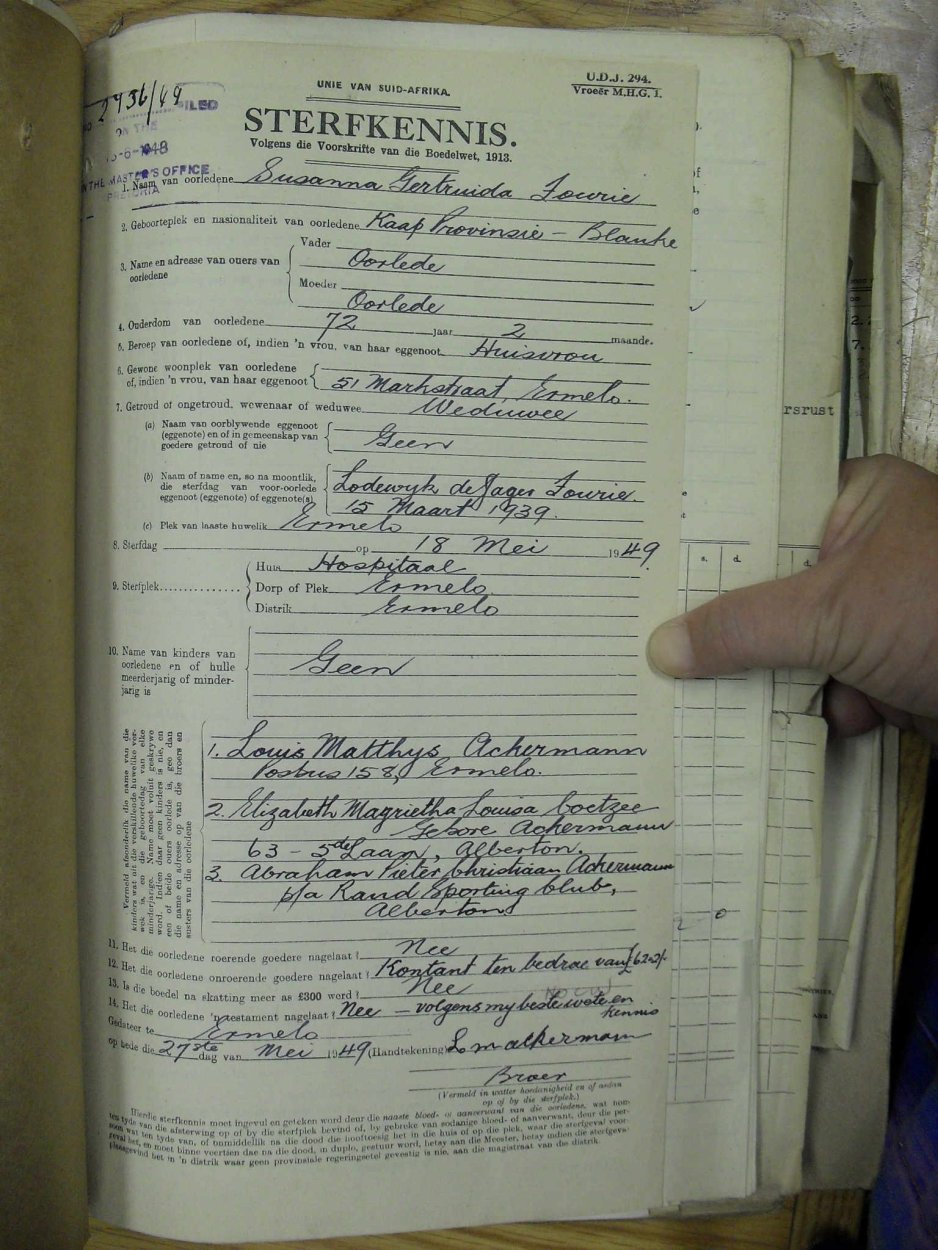 UNIE VAN SUID-AFRIKA.
U.D.J. 294.
Vroeër M.H.G. 1.
NO 2936/49
FILED
ON THE
-6-1948
IN THE MASTER'S OFFICE
PRETORIA
STERFKENNIS.
Volgens die Voorskrifte van die Boedelwet, 1913.
1. Naam van oorledene Susanna Gertruida Fourie
2. Geboorteplek en nasionaliteit van oorledene Kaap Provinsie - Blanke
3. Name en adresse van ouers van oorledene
Vader
Oorlede
Moeder
Oorlede
4. Ouderdom van oorledene 72 jaar 2 maande.
5. Beroep van oorledene of, indien 'n vrou, van haar eggenoot Huisvrou
6. Gewone woonplek van oorledene
of, indien 'n vrou, van haar eggenoot 51 Markstraat, Ermelo.
7. Getroud of ongetroud, wewenaar of weduwee Weduwee
(a) Naam van oorblywende eggenoot
(eggenote) en of in gemeenskap van
goedere getroud of nie
Geen
(b) Naam of name en, so na moontlik,
die sterfdag van voor-oorlede
eggenoot (eggenote) of eggenote(s)
Lodewyk de Jager Fourie
15 Maart 1939.
(c) Plek van laaste huwelik Ermelo
8. Sterfdag op 18 Mei 1949.
9. Sterfplek
Huis Hospitaal
Dorp of Plek Ermelo
Distrik Ermelo
10. Name van kinders van
oorledene en of hulle
meerderjarig of minder-
jarig is
Geen
Vermeld afsonderlik die name van die
kinders wat uit die verskillende huwelike vos-
wek is, en die geboortedag van elke
minderjarige. Name moet voluit geskrywe
word. Indien daar geen kinders is nie, en
een of beide ouers oorlede is, gee dan
die name en adresse op van die broers en
susters van die oorledene
1. Louis Matthys Ackermann
Posbus 158, Ermelo.
2. Elizabeth Magrietha Louisa Coetzee
Gebore Ackermann
63 - 5de Laan, Alberton.
3. Abraham Pieter Christiaan Ackermann
p/a Rand Sporting Club,
Alberton
11. Het die oorledene roerende goedere nagelaat? Nee
12. Het die oorledene onroerende goedere nagelaat? Kontant ten bedrae van £62-2/-
13. Is die boedel na skatting meer as £300 werd? Nee
14. Het die oorledene 'n testament nagelaat? Nee - volgens my beste wete en
kennis
Gedateer te Ermelo
op hede die 27ste dag van Mei 1949 (Handtekening) L m ackermann
Broer
(Vermeld in watter hoedanigheid en of aidan
op of by die sterfplek.)
Hierdie sterfkennis moet ingevul en geteken word deur die naaste bloed- of aanverwant van die oorledene, wat
ten tyde van die afsterwing op of by die sterfplek bevind of, by gebreke van sodanige bloed- of aanverwant, deur die per-
soon wat ten tyde van, of onmiddellik na die dood die hooftoesig het in die huis of op die plek, waar die sterfgeval voor-
geval het, en moet binne veertien dae na die dood, in duplo, gestuur word, hetsy aan die Meester, hetsy indien die sterfgeval
plaasgevind het in 'n distrik waar geen provinsiale regeringsetel gevestig is nie, aan die magistraat van die distrik.
rsrust
s. d.
d.